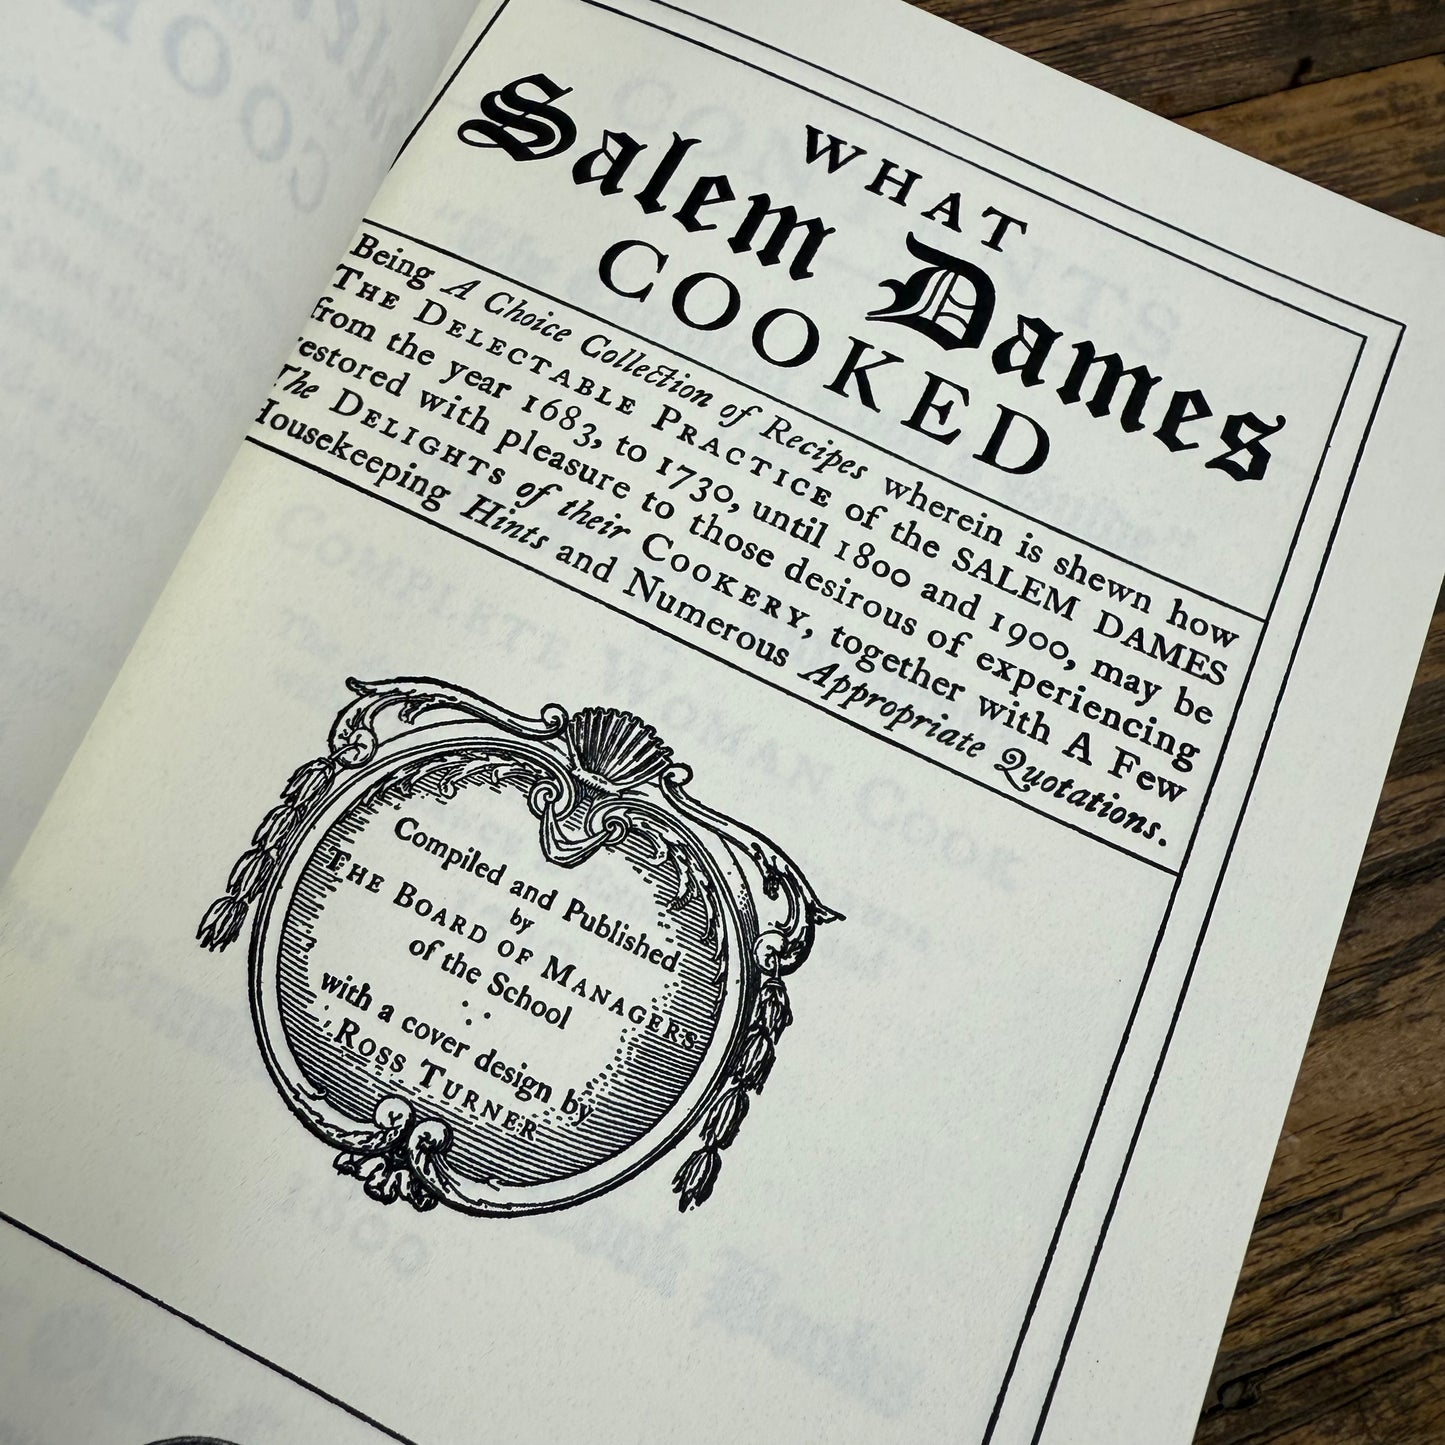 WHAT
Salem Dames
COOKED
Being A Choice Collection of Recipes wherein is shewn how
THE DELECTABLE PRACTICE of the SALEM DAMES
from the year 1683, to 1730, until 1800 and 1900, may be
restored with pleasure to those desirous of experiencing
The DELIGHTS of their COOKERY, together with A Few
Housekeeping Hints and Numerous Appropriate Quotations.
Compiled and Published
by
THE BOARD OF MANAGERS
of the School
with a cover design by
ROSS TURNER